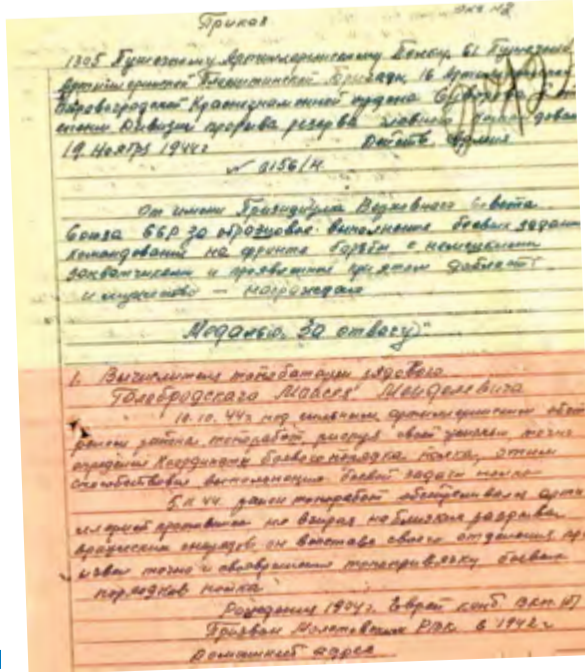 Приказ
экз №2
1305 Пушечному Артиллерийскому Полку 61 Пушечной
Артиллерийской бригады 16 Артиллерийской
Кировоградской Краснознаменной ордена
дивизии прорыва резерва главного
19 Ноября 1944г Действ. Армия
№ 0156/н.
От имени Президиума Верховного Совета
Союза ССР за образцовое выполнение боевых заданий
командования на фронте борьбы с немецкими
захватчиками и проявленные при этом доблесть
и мужество — награждаю
Медалью „За отвагу":
1. Вычислителя топобатареи рядового
Голобродского Моисея Мойделевича
10.10.44г под сильным артиллерийским
района топоработ, рискуя своей жизнью, точно
определил Координаты боевого порядка полка, этим
способствовал выполнению боевой задачи полком
5.11.44. район топоработ обстреливался
противником не взирая на близкие разрывы
вражеских снарядов он
точно и своевременно топопривязку боевых
порядков полка.
Рождения 1904г. Еврей канд. ВКП(б)
Призван Молотовским РВК в 1942г
Домашний адрес